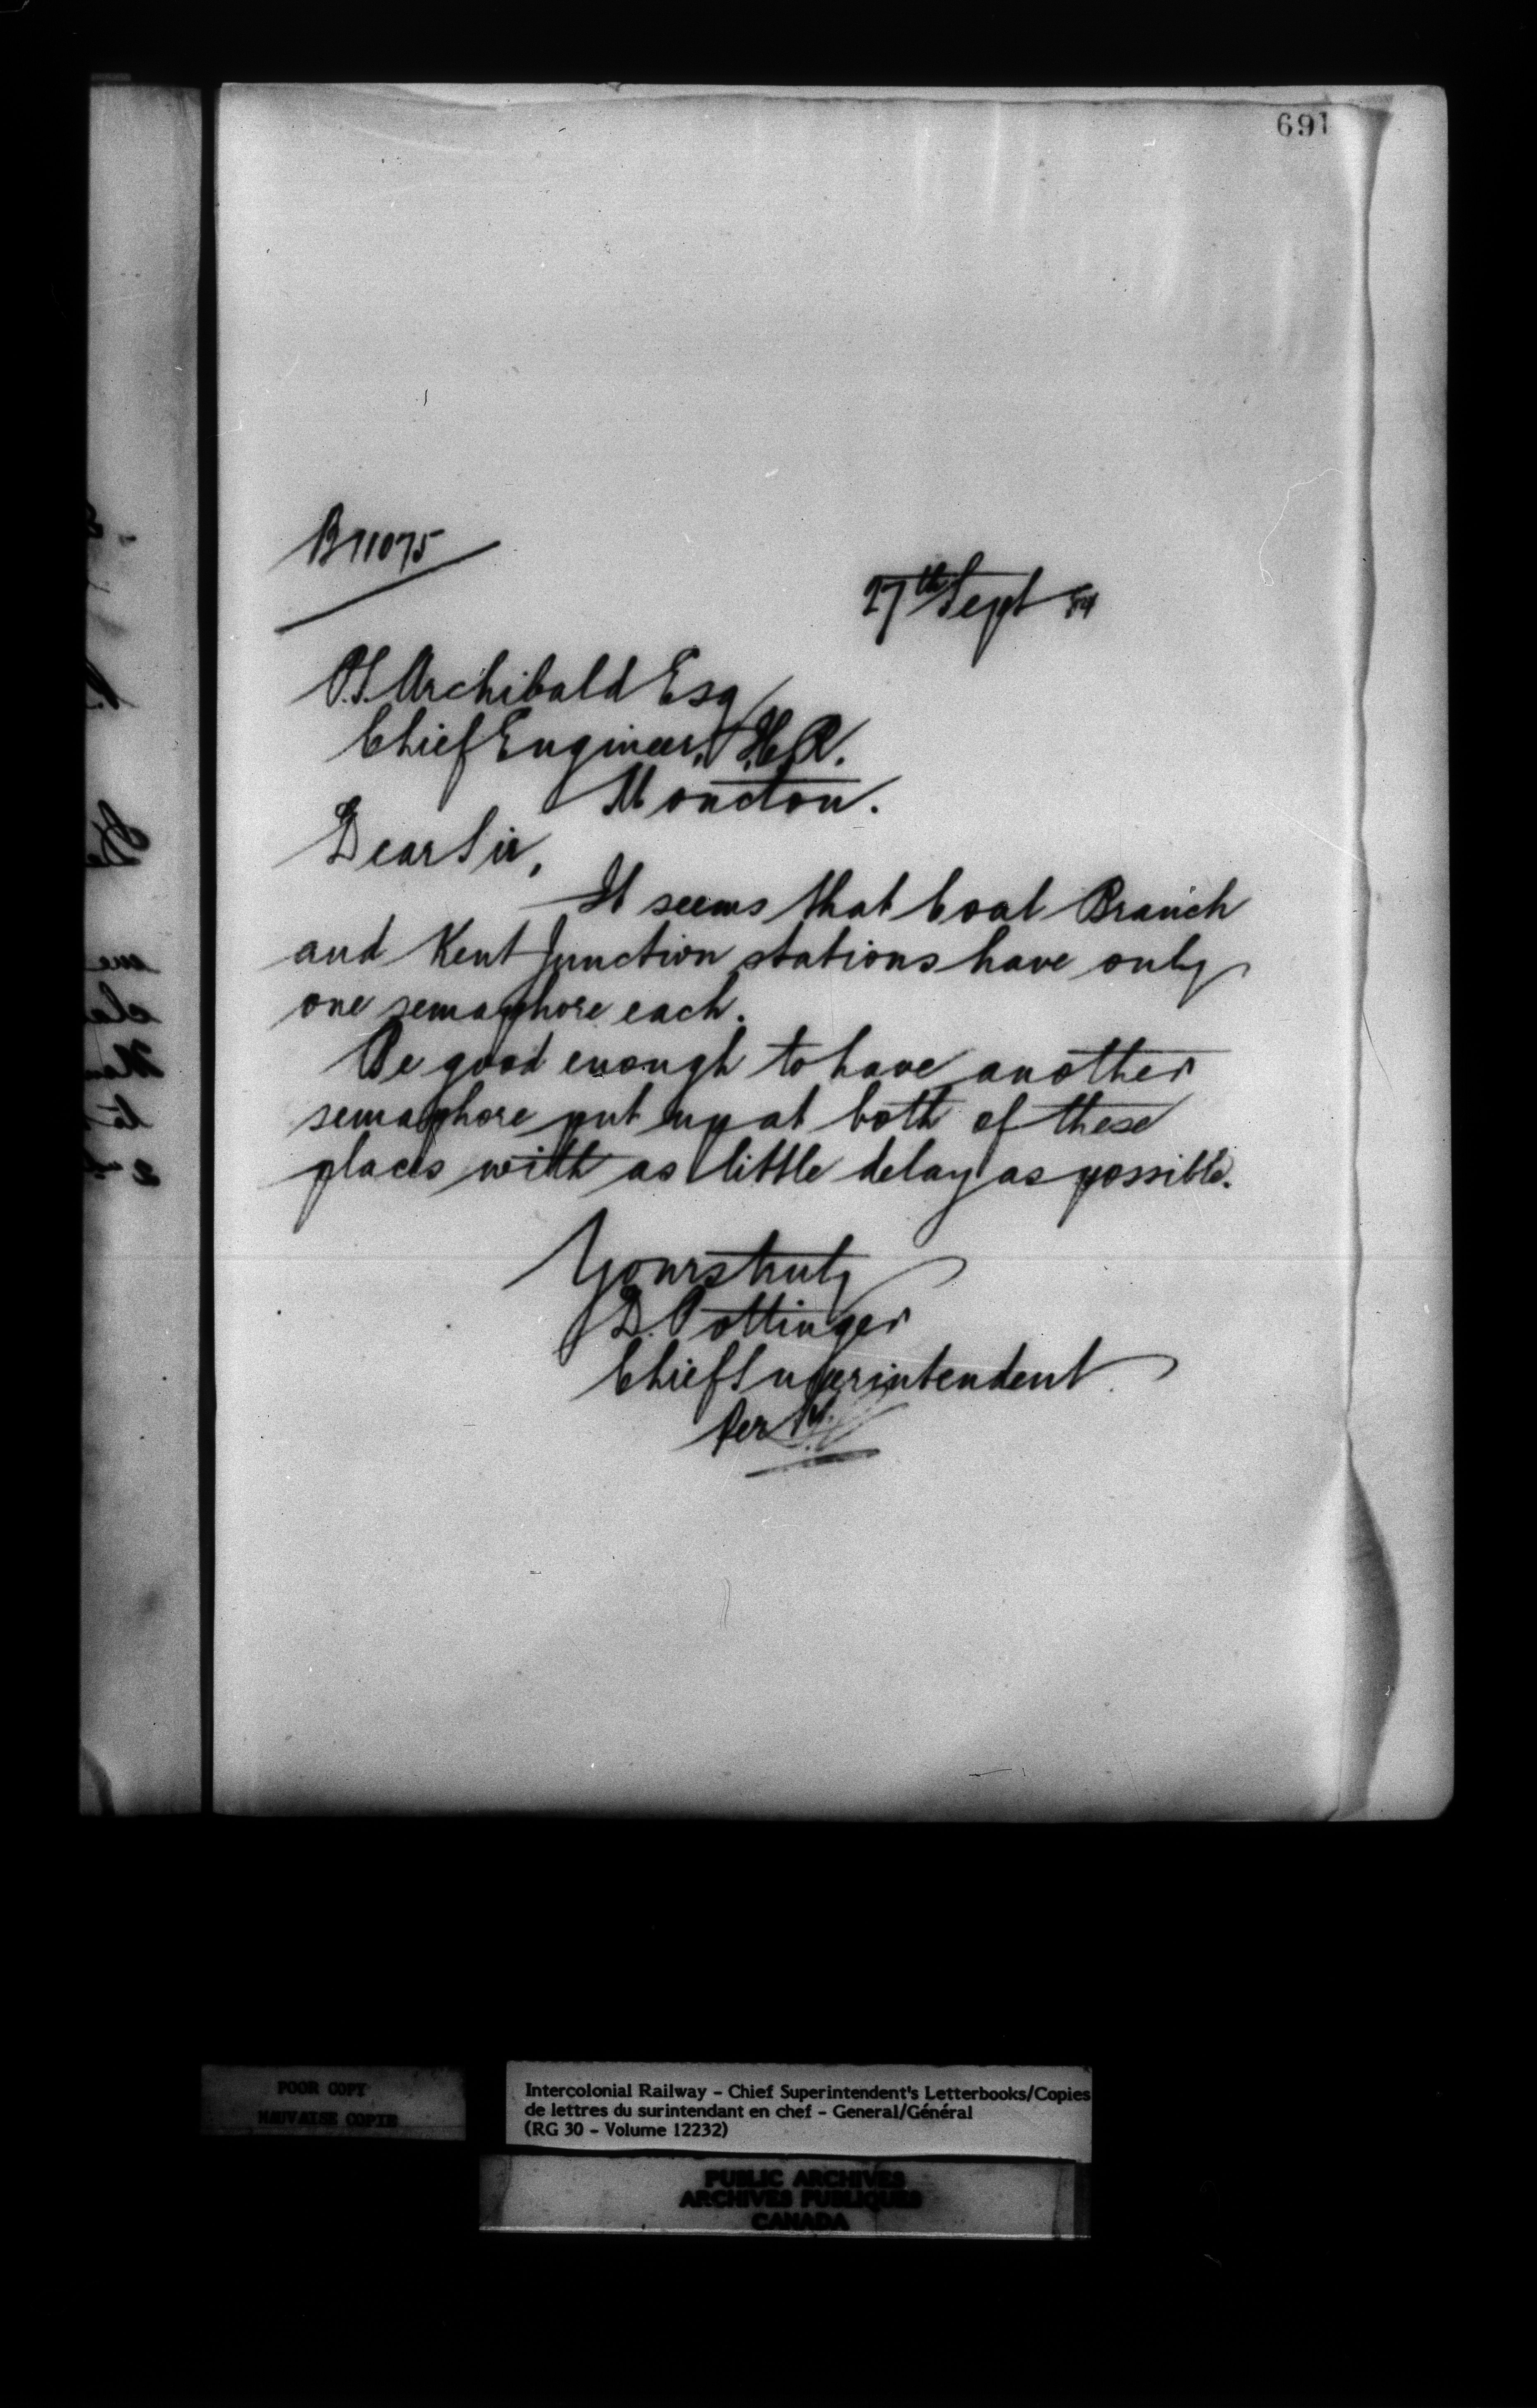 691
B11075
27th Sept 84
P.S. Archibald Esq
Chief Engineer, I.C.R.
Moncton.
Dear Sir,
It seems that Coal Branch
and Kent Junction stations have only
one semaphore each.
Be good enough to have another
semaphore put up at both of these
places with as little delay as possible.
Yours truly
D. Pottinger
Chief Superintendent
Per
POOR COPY
MAUVAISE COPIE
Intercolonial Railway - Chief Superintendent's Letterbooks/Copies
de lettres du surintendant en chef - General/Général
(RG 30 - Volume 12232)
PUBLIC ARCHIVES
ARCHIVES PUBLIQUES
CANADA